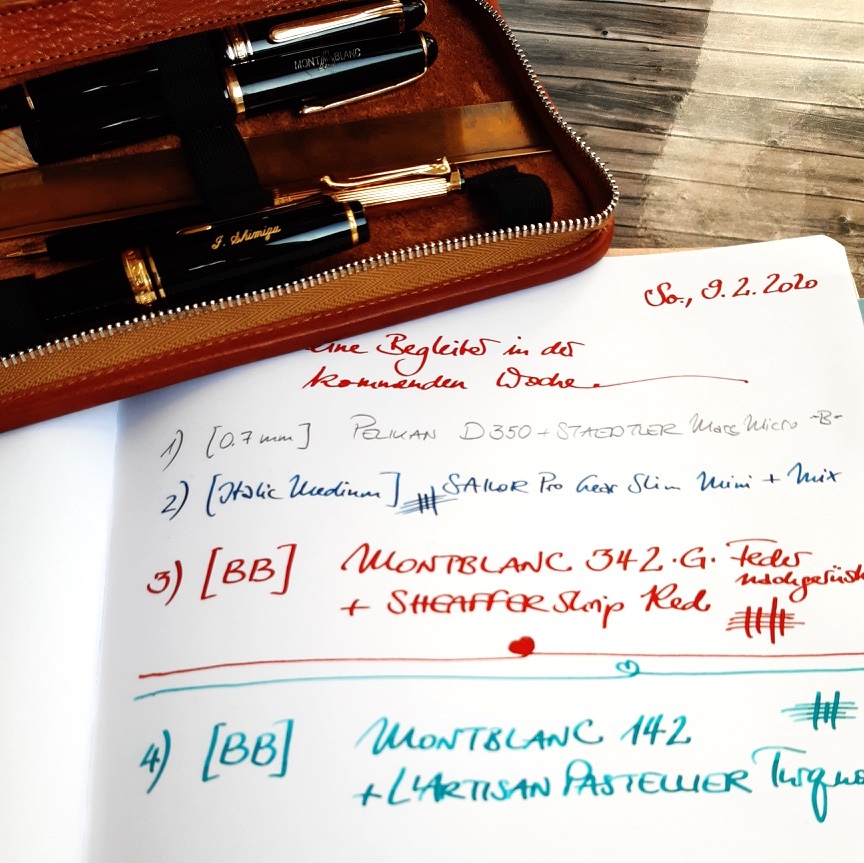 MONTBLANC
J. Shimizu
So., 9.2.2020
eine Begleiter in der
kommenden Woche
1) [0.7 mm] PELIKAN D350 + STAEDTLER Mars Micro -B-
2) [Italic Medium] SAILOR Pro Gear Slim Mini + Mix
3) [BB] MONTBLANC 342·G· Feder
nachgerüst
+ SHEAFFER Skrip Red
4) [BB] MONTBLANC 142
+ L'ARTISAN PASTELLIER Turquo